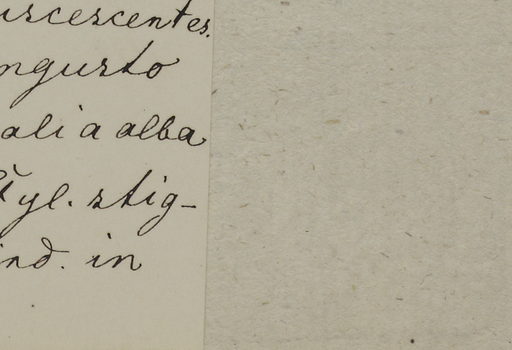 uscescentes.
ngusto
alia alba
tyl. stig-
ind. in